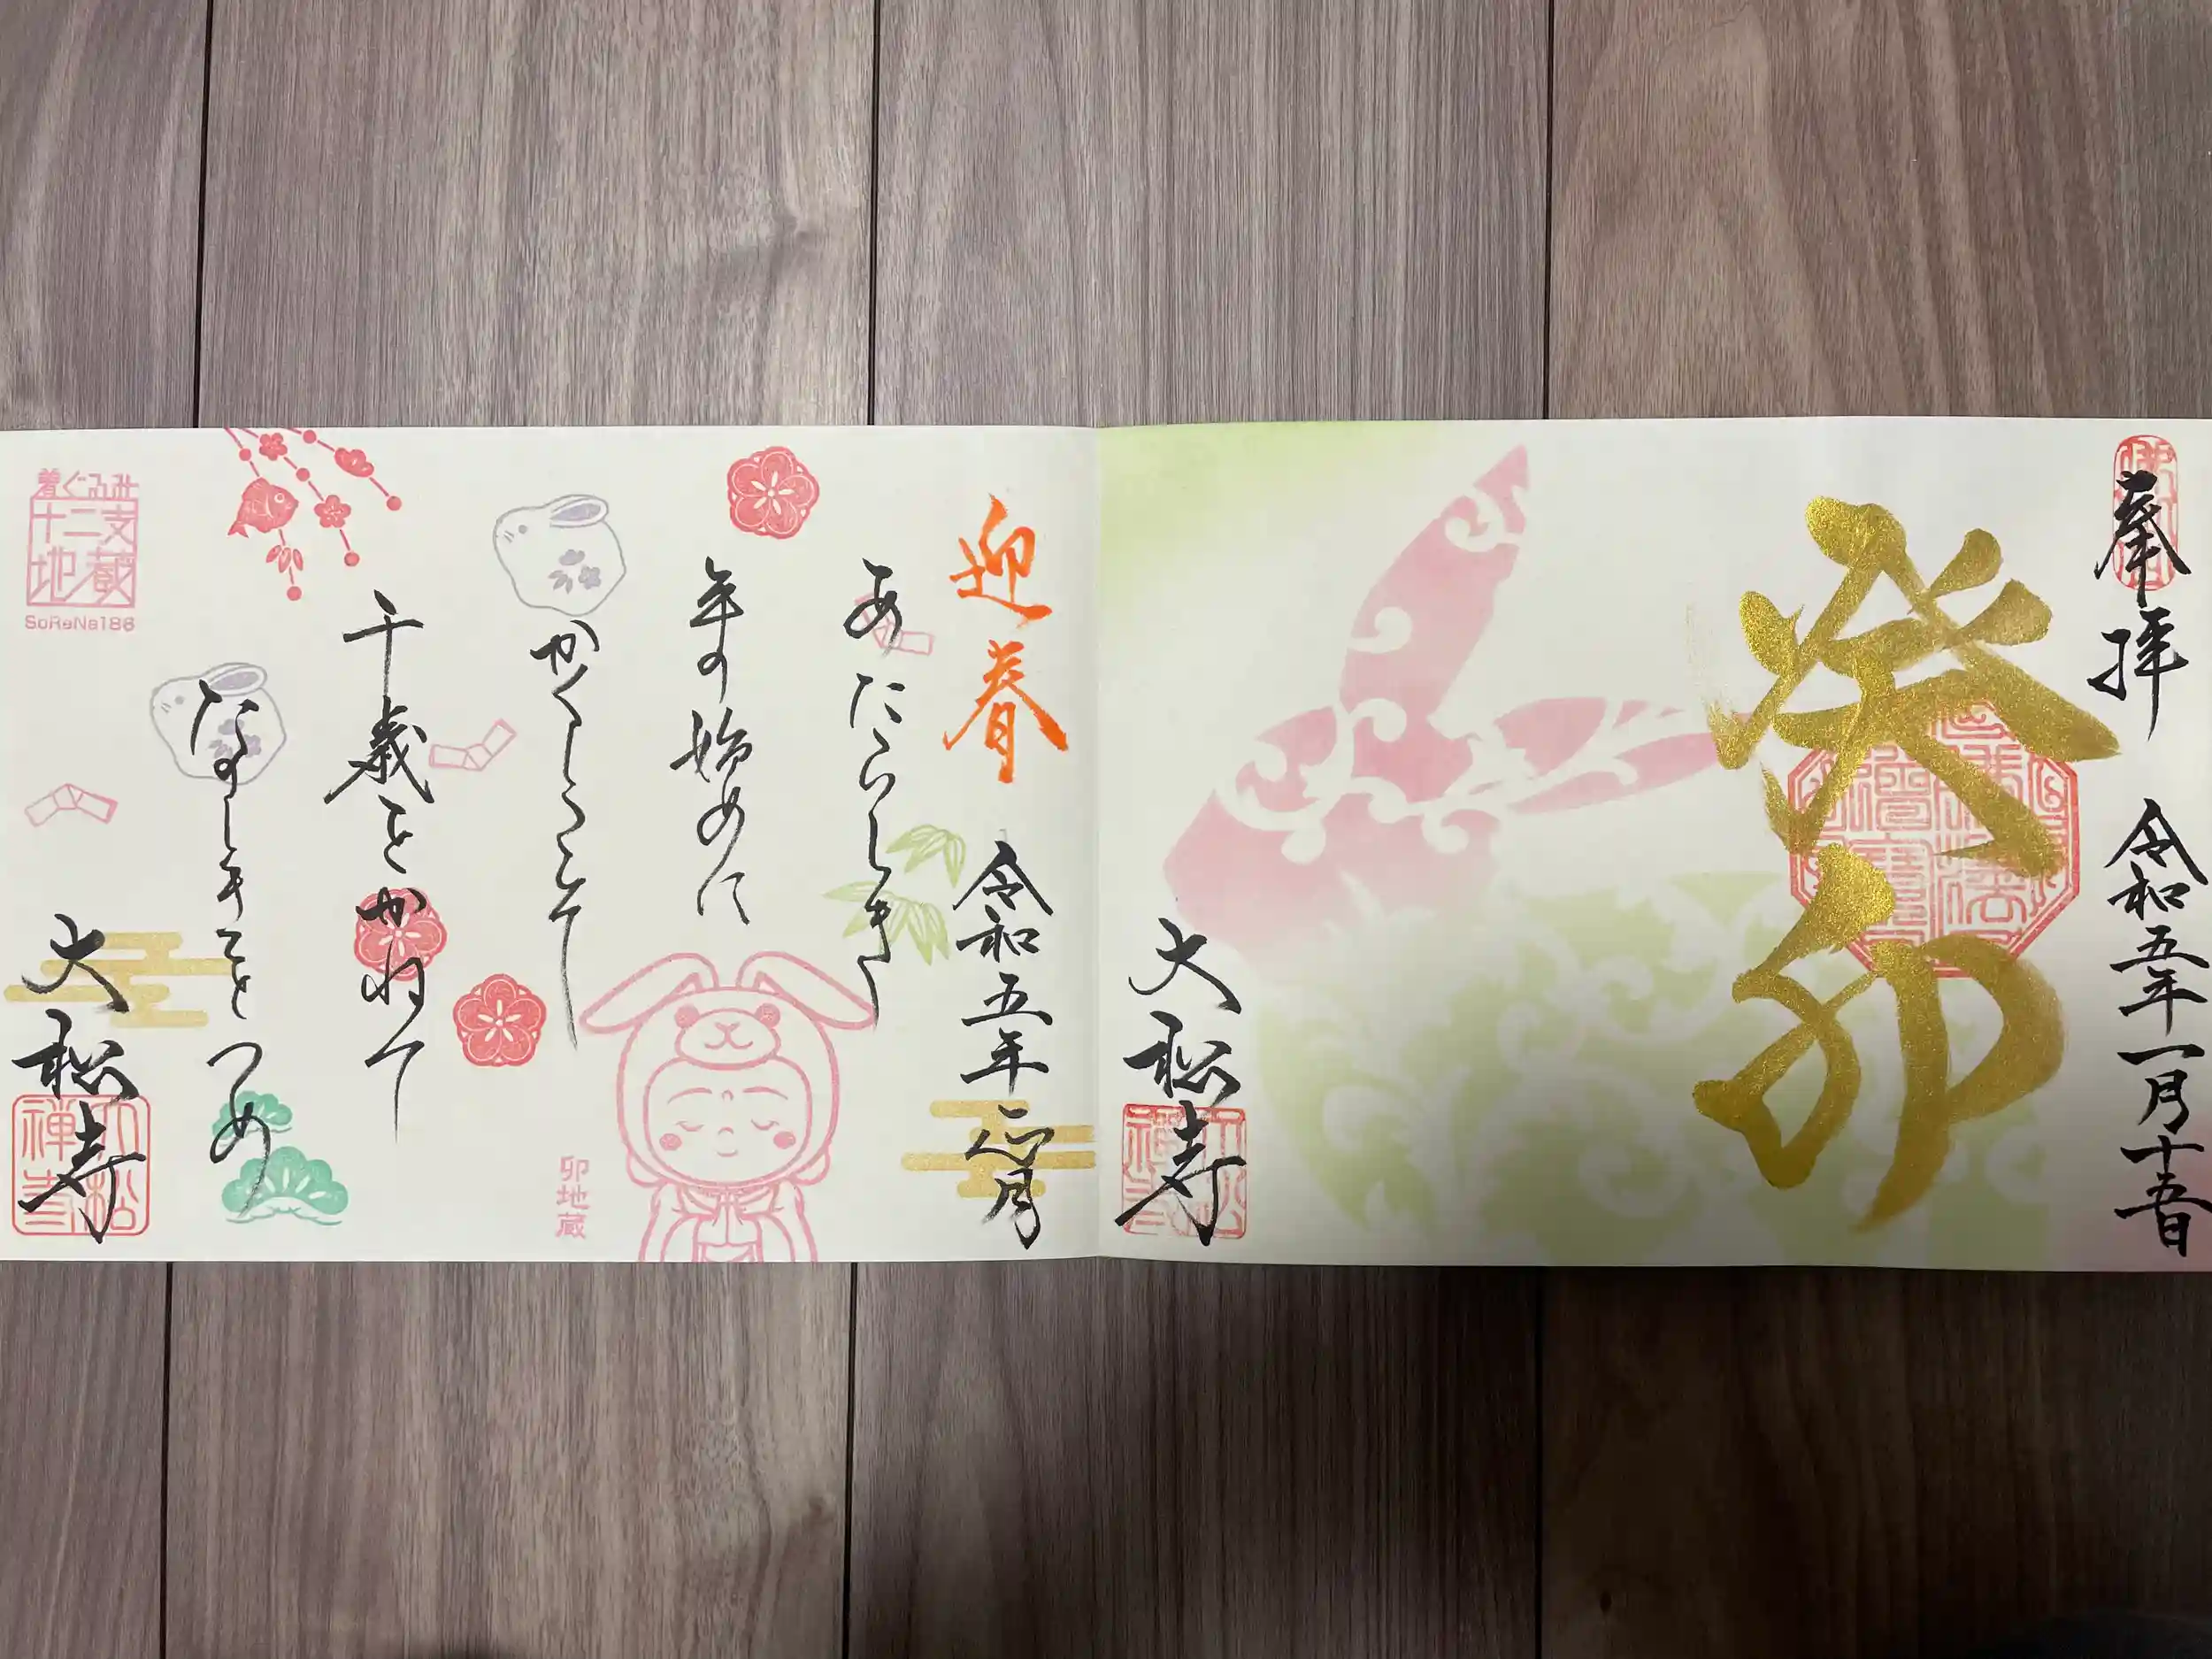 奉拝
令和五年一月十五日
癸卯
大松寺
迎春
令和五年正月
あたらしき
年の始めに
かくしこそ
千歳をかねて
たのしきことをつめ
大松寺
卯地蔵
着ぐるみ
十二支
地蔵
SoRaNa186